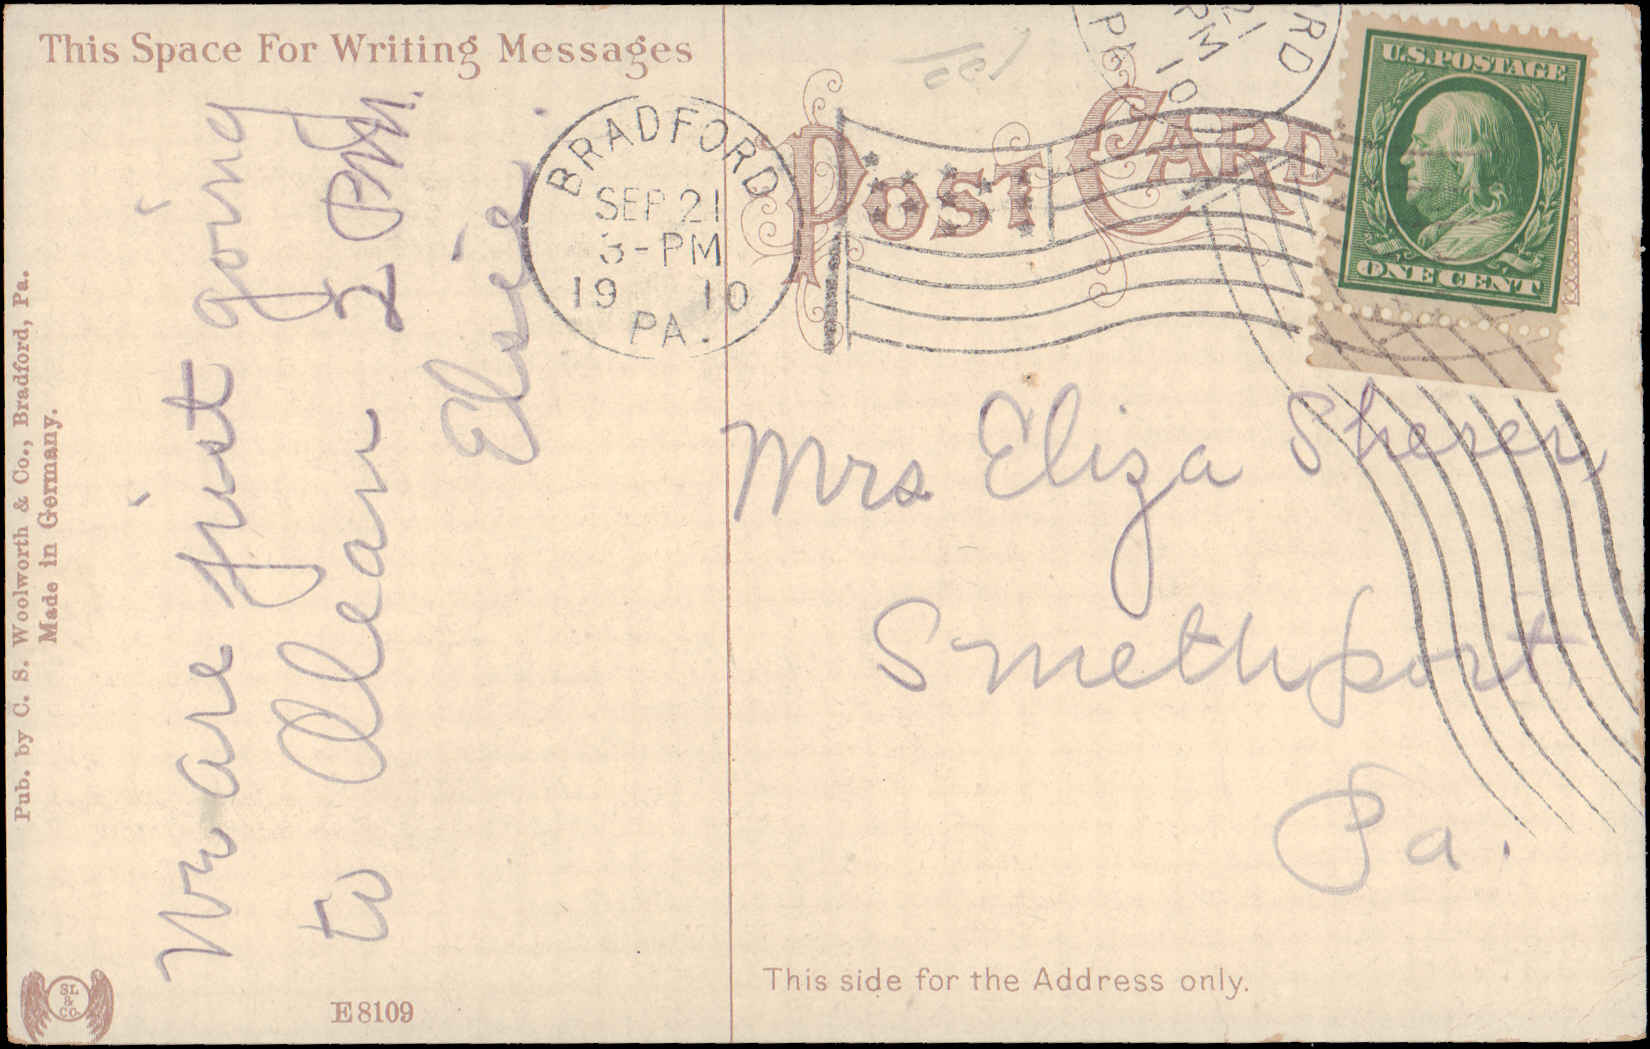 This Space For Writing Messages
We are just going
to Olean 2 PM.
Elsie.
Pub. by C. S. Woolworth & Co., Bradford, Pa.
Made in Germany.
SL
&
CO.
E 8109
BRADFORD
SEP 21
3-PM
19 10
PA.
POST CARD
RD
21
PM
10
P
U.S. POSTAGE
ONE CENT
Mrs Eliza Sherer
Smethport
Pa.
This side for the Address only.